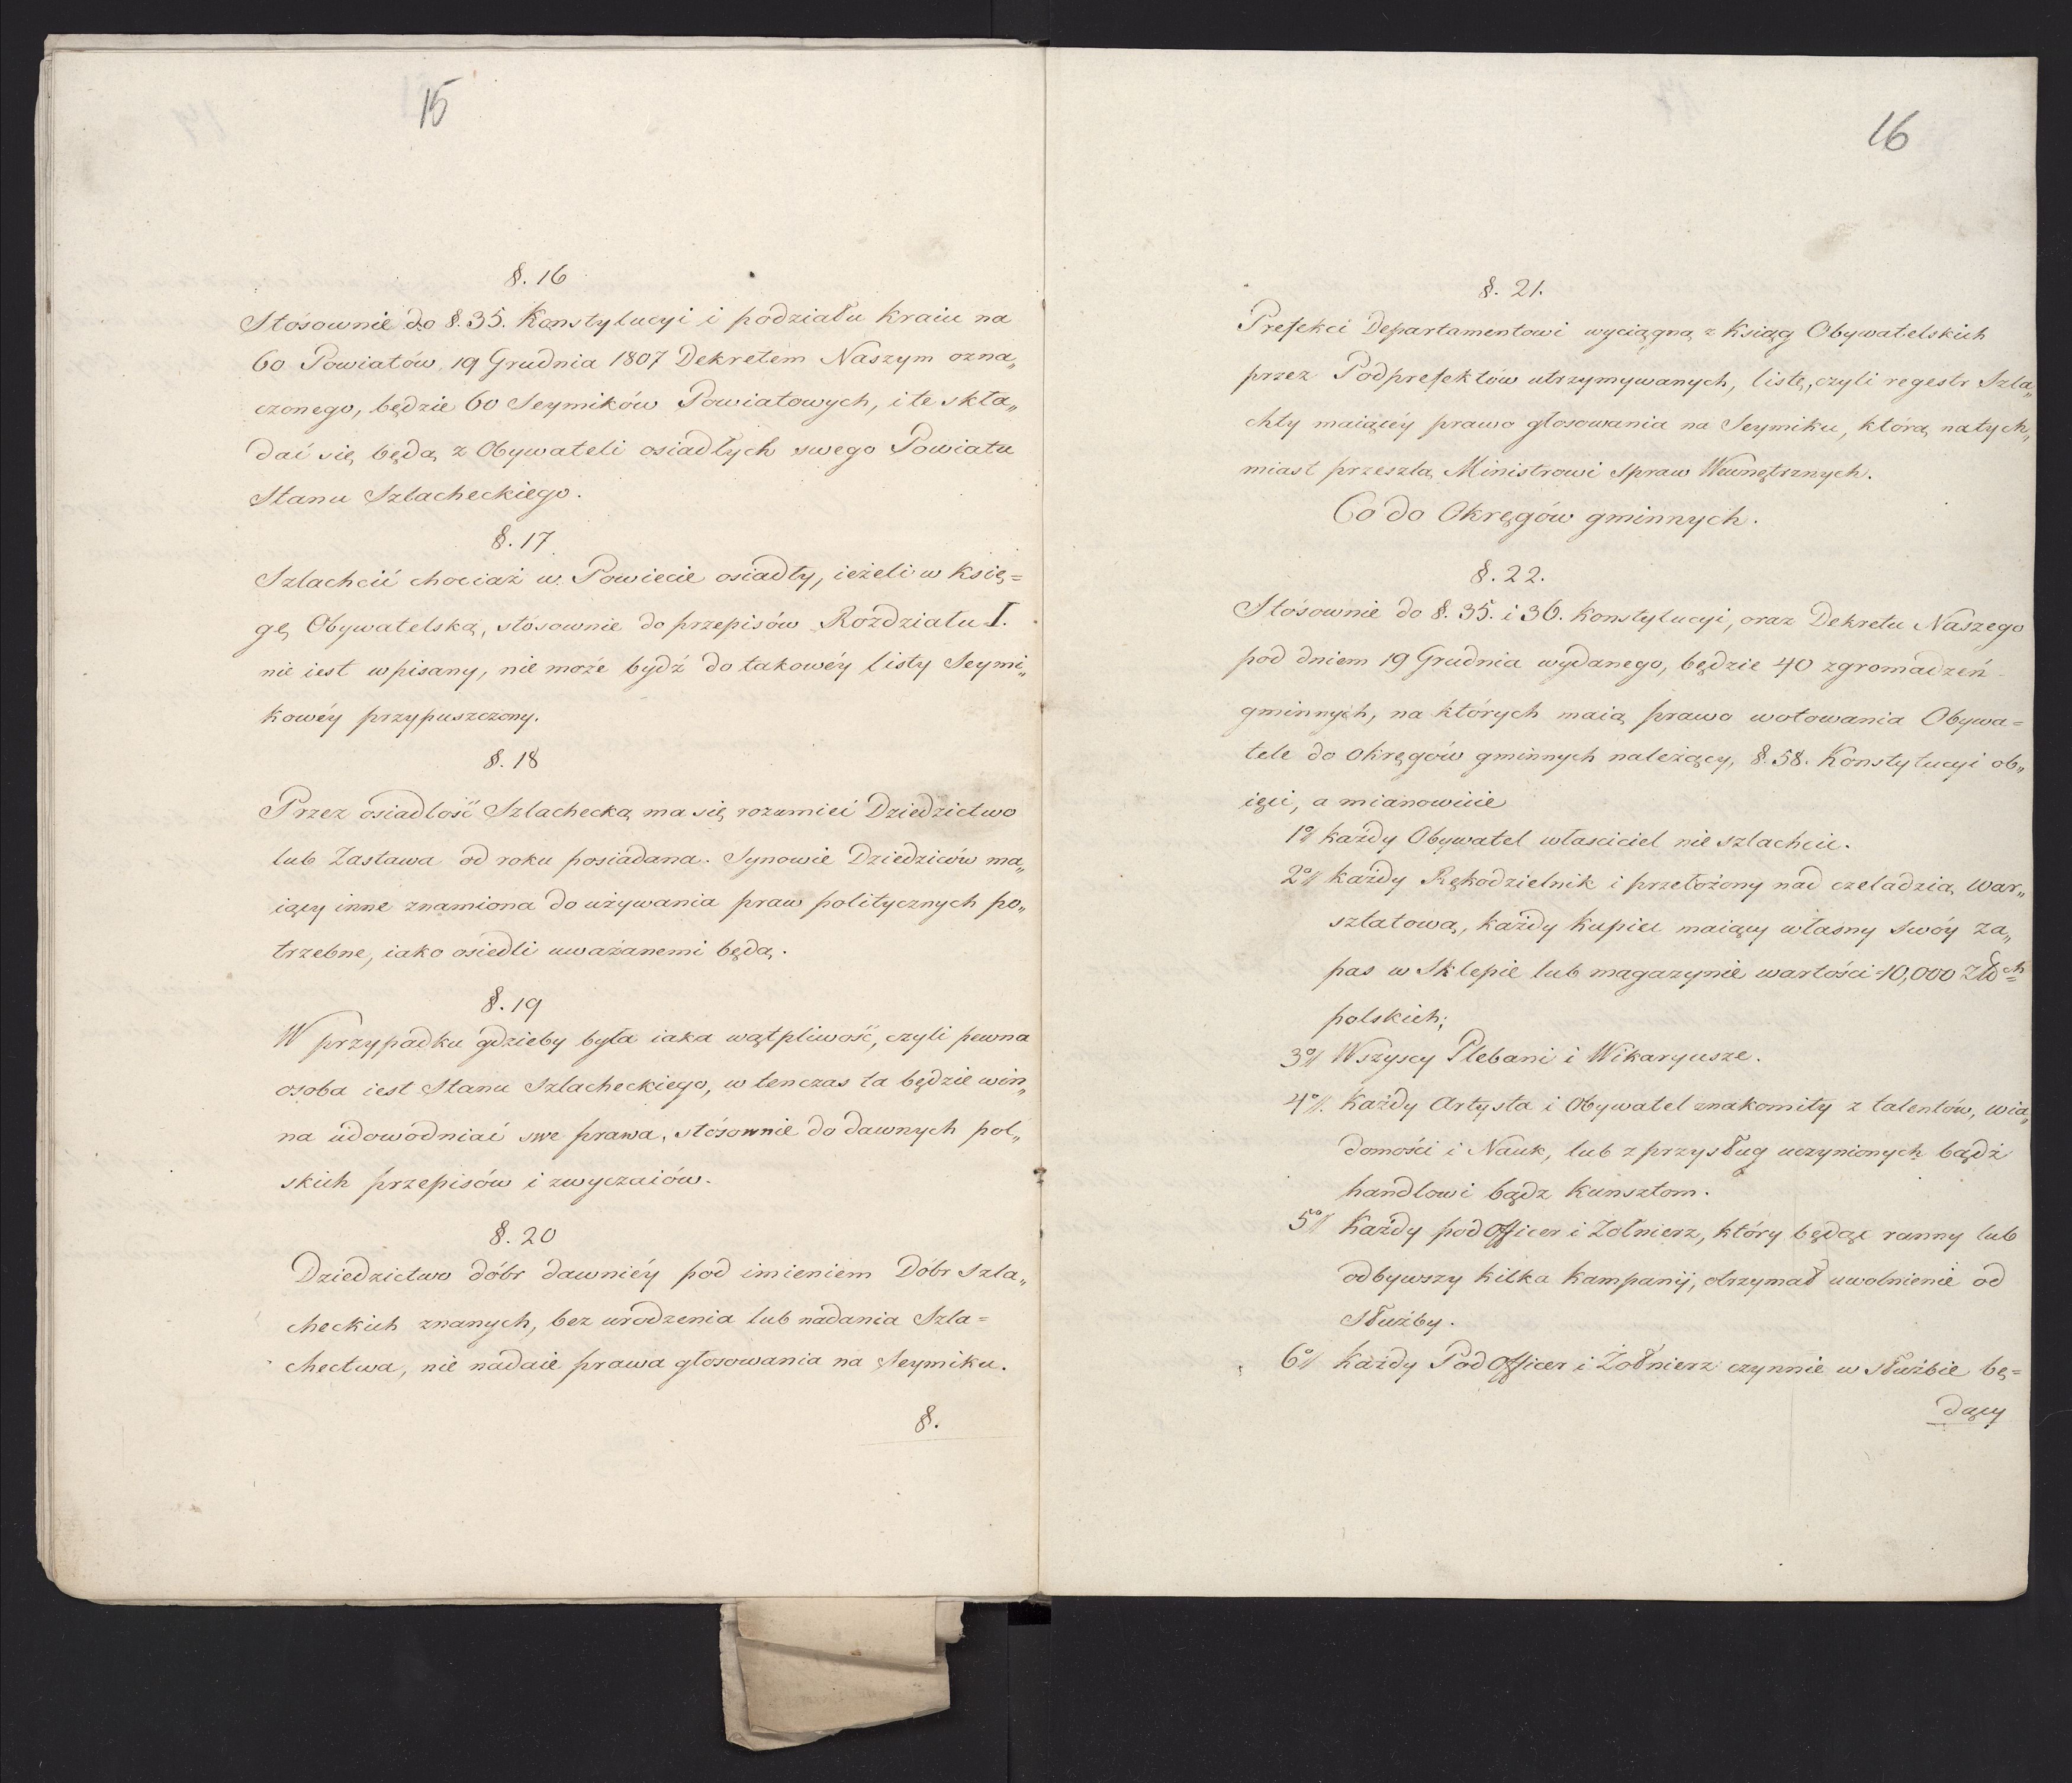 15
§. 16
Stósownie do §. 35. Konstytucyi i podziału Kraiu na
60 Powiatów, 19 Grudnia 1807 Dekretem Naszym ozna„
czonego, będzie 60 Seymików Powiatowych, i te skła„
dać się będą z Obywateli osiadłych swego Powiatu
Stanu Szlacheckiego.
§. 17
Szlachcić chociaż w Powiecie osiadły, ieżeli w Księ=
gę Obywatelską, stósownie do przepisów Rozdziału I.
nie iest wpisany, nie może bydź do takowéy listy Seymi„
kowéy przypuszczony.
§. 18
Przez osiadłość Szlachecką ma się rozumieć Dziedzictwo
lub Zastawa od roku posiadana. Synowie Dziedziców ma„
iący inne znamiona do używania praw politycznych po„
trzebne, iako osiedli uważanemi będą.
§. 19
W przypadku gdzieby była iaka wątpliwość, czyli pewna
osoba iest Stanu Szlacheckiego, w tenczas ta będzie win„
na udowodniać swe prawa, stósownie do dawnych pol„
skich przepisów i zwyczaiów.
§. 20
Dziedzictwo dóbr dawniéy pod imieniem Dóbr Szla„
checkich znanych, bez urodzenia lub nadania Szla=
chectwa, nie nadaie prawa głosowania na Seymiku.
§.
16
§. 21.
Prefekci Departamentowi wyciągną z Ksiąg Obywatelskich
przez Podprefektów utrzymywanych, listę, czyli regestr Szla„
chty maiącéy prawo głosowania na Seymiku, którą natych„
miast przeszlą Ministrowi Spraw Wewnętrznych.
Co do Okręgów gminnych.
§. 22.
Stósownie do §. 35. i 36. Konstytucyi, oraz Dekretu Naszego
pód dniem 19 Grudnia wydanego, będzie 40 zgromadzeń
gminnych, na których maią prawo wotowania Obywa=
tele do Okręgów gminnych należący, §. 58. Konstytucyi ob„
ięci, a mianowicie
1º// każdy Obywatel właściciel nie szlachcic.
2º// każdy Rękodzielnik i przełożony nad czeladzią war„
sztatową, każdy kupiec maiący własny swóy za„
pas w Sklepie lub magazynie wartości 10,000 Złtch
polskich;
3º// Wszyscy Plebani i Wikaryusze.
4º//. Każdy Artysta i Obywatel znakomity z talentów, wia„
domości i Nauk, lub z przysług uczynionych bądź
handlowi bądz kunsztom.
5º// Każdy podofficer i Zołnierz, który będąc ranny lub
odbywszy kilka kampanij, otrzymał uwolnienie od
Służby.
6º// Każdy PodOfficer i Żołnierz czynnie w służbie bę=
dący